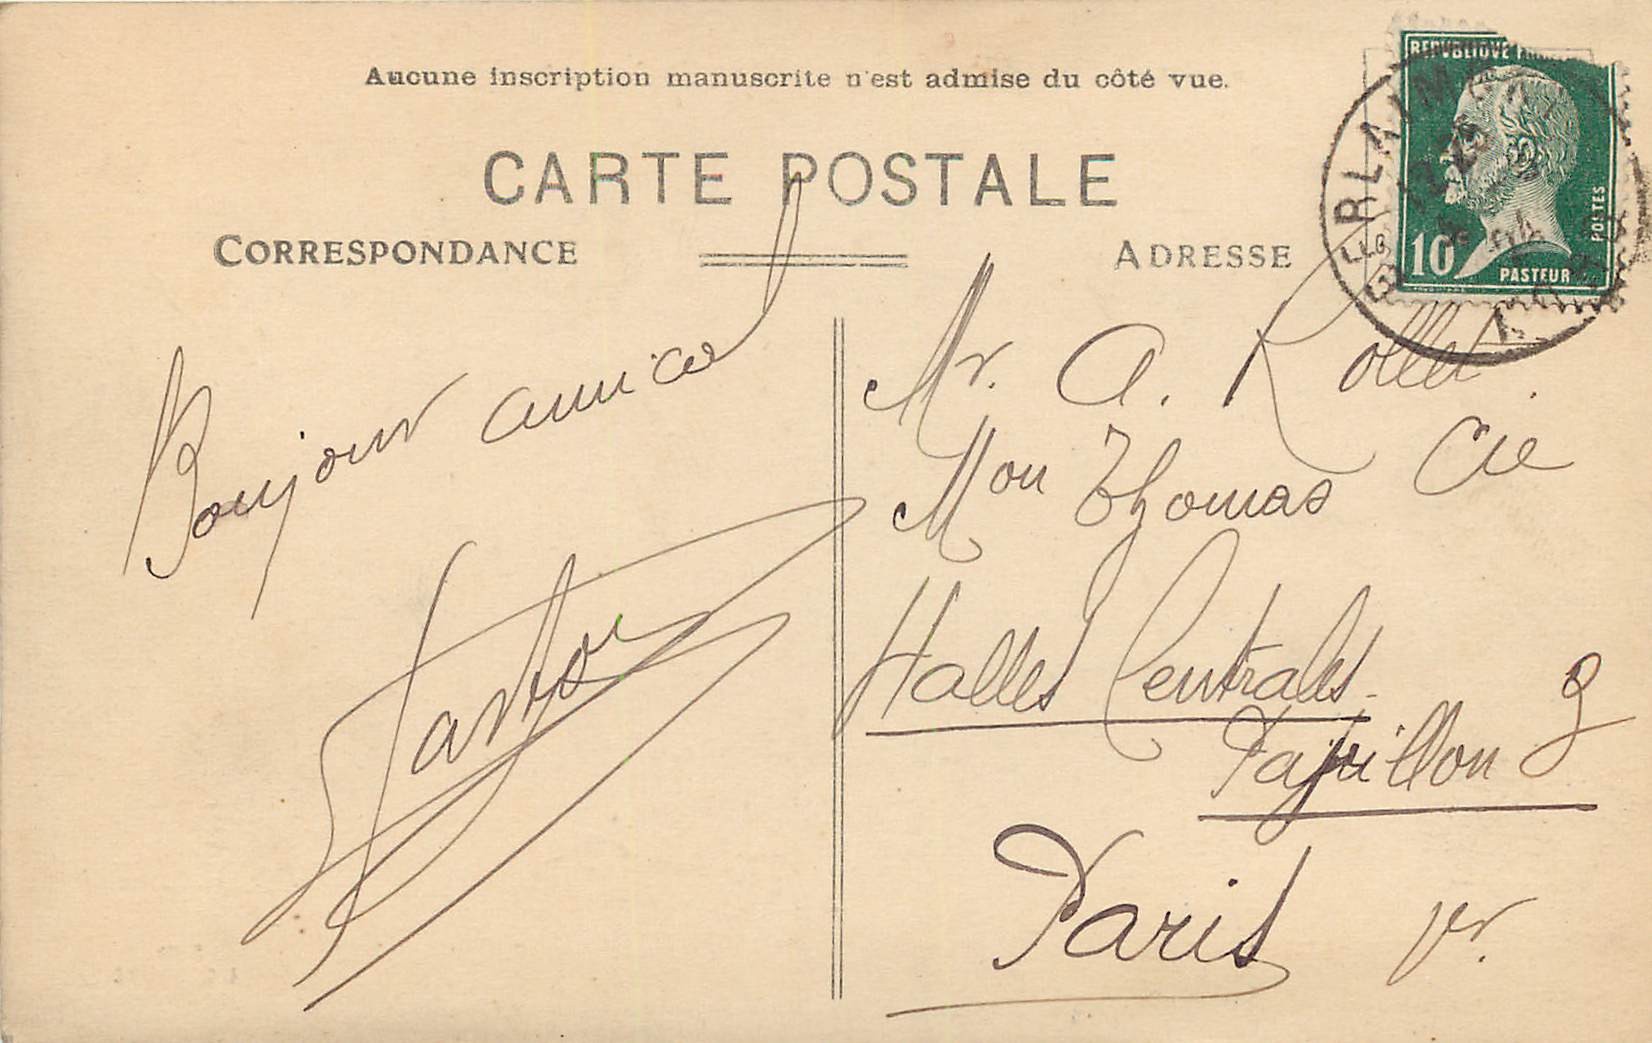 Aucune inscription manuscrite n'est admise du côté vue.
CARTE POSTALE
CORRESPONDANCE
ADRESSE
REPUBLIQUE
10
PASTEUR
POSTES
BLAIMONT
Bonjour amical
Mr. A. Rollet
Mon Thomas Cie
Halles Centrales
Pavillon 9
Paris 1er.